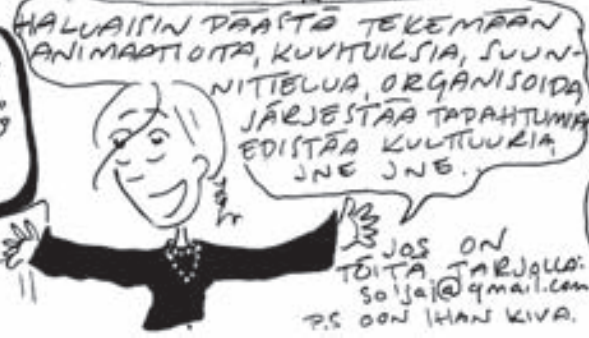 HALUAISIN PÄÄSTÄ TEKEMÄÄN
ANIMAATIOITA, KUVITUKSIA, SUUN-
NITTELUA, ORGANISOIDA
JÄRJESTÄÄ TAPAHTUMIA
EDISTÄÄ KULTTUURIA,
JNE JNE..
JOS ON
TÖITÄ TARJOLLA:
soijaj@gmail.com
P.S OON IHAN KIVA.